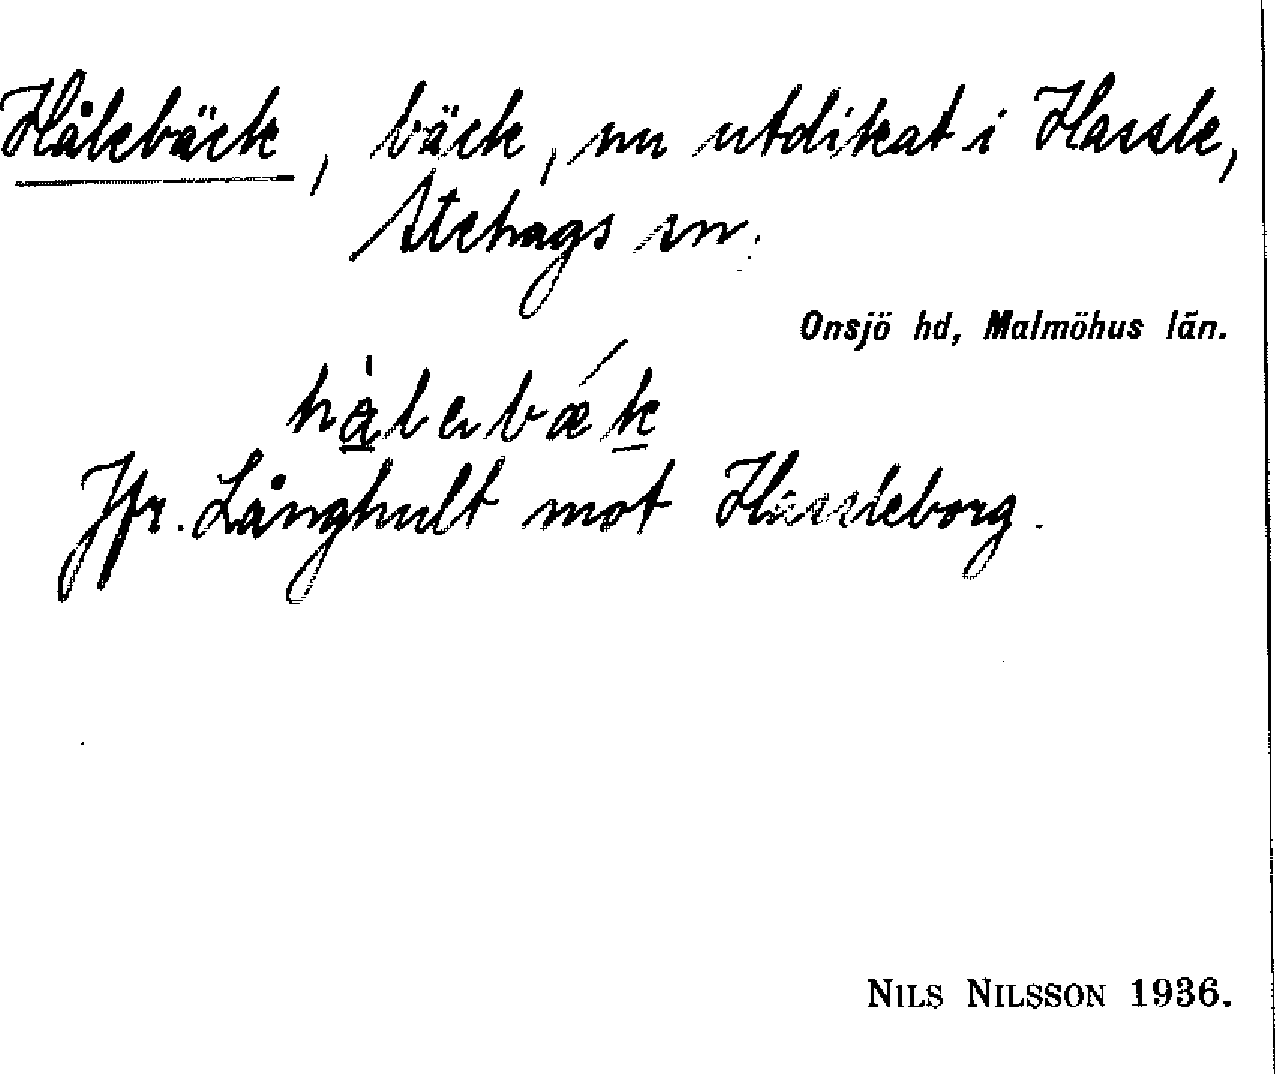 Hålebäck, bäck, nu utdikat i Hassle,
Stehags sn.
Onsjö hd, Malmöhus län.
Jfr. Långhult mot Hassleborg.
NILS NILSSON 1936.